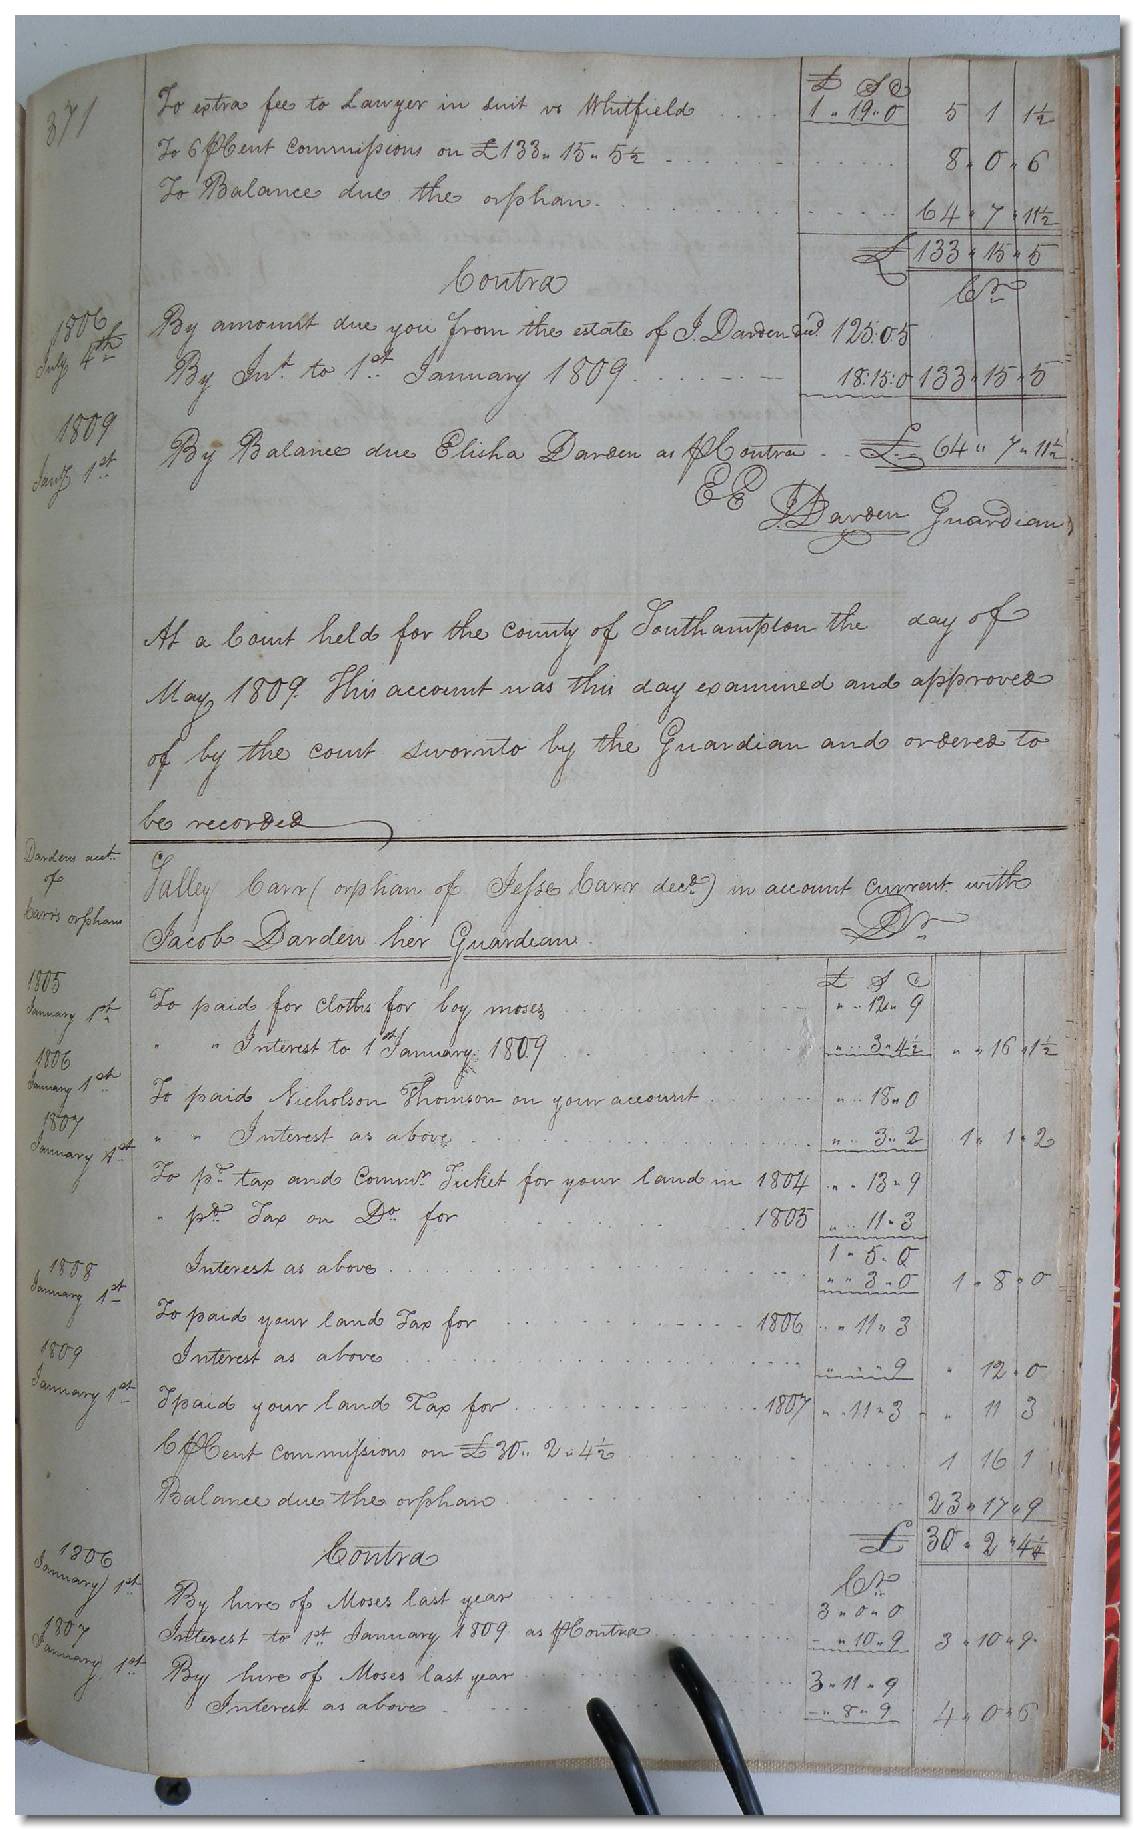 371
£ S D
To extra fee to Lawyer in suit vs Whitfield .... 1 " 19 " 0 5 1 1½
To 6 ⅌Cent Commissions on £133 " 15 " 5½ 8 " 0 " 6
To Balance due the orphan. 64 " 7 " 11½
£ 133 " 15 " 5
Contra Cr
1806
July 4th By amount due you from the estate of J. Darden decd. 125.0.5
By Int. to 1st January 1809 18:15:0 133 " 15 " 5
1809
Jany 1st By Balance due Elisha Darden as ⅌ Contra .. £ 64 " 7 " 11½
EE
J Darden Guardian
At a Court held for the county of Southampton the day of
May 1809. This account was this day examined and approved
of by the court sworn to by the Guardian and ordered to
be recorded
Dardens acct.
of
Carrs orphan
Talley Carr (orphan of Jesse Carr decd.) in account current with
Jacob Darden her Guardian. Dr
£ S D
1805
January 1st To paid for cloths for boy moses " .. 12 " 9
" " Interest to 1st January 1809 " .. 3 " 4½ " " 16 " 1½
1806
January 1st To paid Nicholson Thomson on your account " .. 18 " 0
1807
January 1st " " Interest as above " .. 3 " 2 1 " 1 " 2
To pd. tax and Commrs. Ticket for your land in 1804 " .. 13 " 9
" pd. Tax on Do. for 1805 " .. 11 " 3
1 " 5 " 0
1808
January 1st Interest as above " " 3 " 0 1 " 8 " 0
To paid your land Tax for 1806 " " 11 " 3
1809
Interest as above " " " 9 " 12 " 0
January 1st To paid your land Tax for 1807 " " 11 " 3 " 11 3
6 ⅌Cent commissions on £30 " 2 " 4½ 1 16 1
Balance due the orphan 23 " 17 " 9
£ 30 " 2 " 4½
Contra Cr
1806
January 1st By hire of Moses last year 3 " 0 " 0
Interest to 1st January 1809 as ⅌ Contra " " 10 " 9 3 " 10 " 9
1807
January 1st By hire of Moses last year 3 " 11 " 9
Interest as above " " 8 " 9 4 " 0 " 6